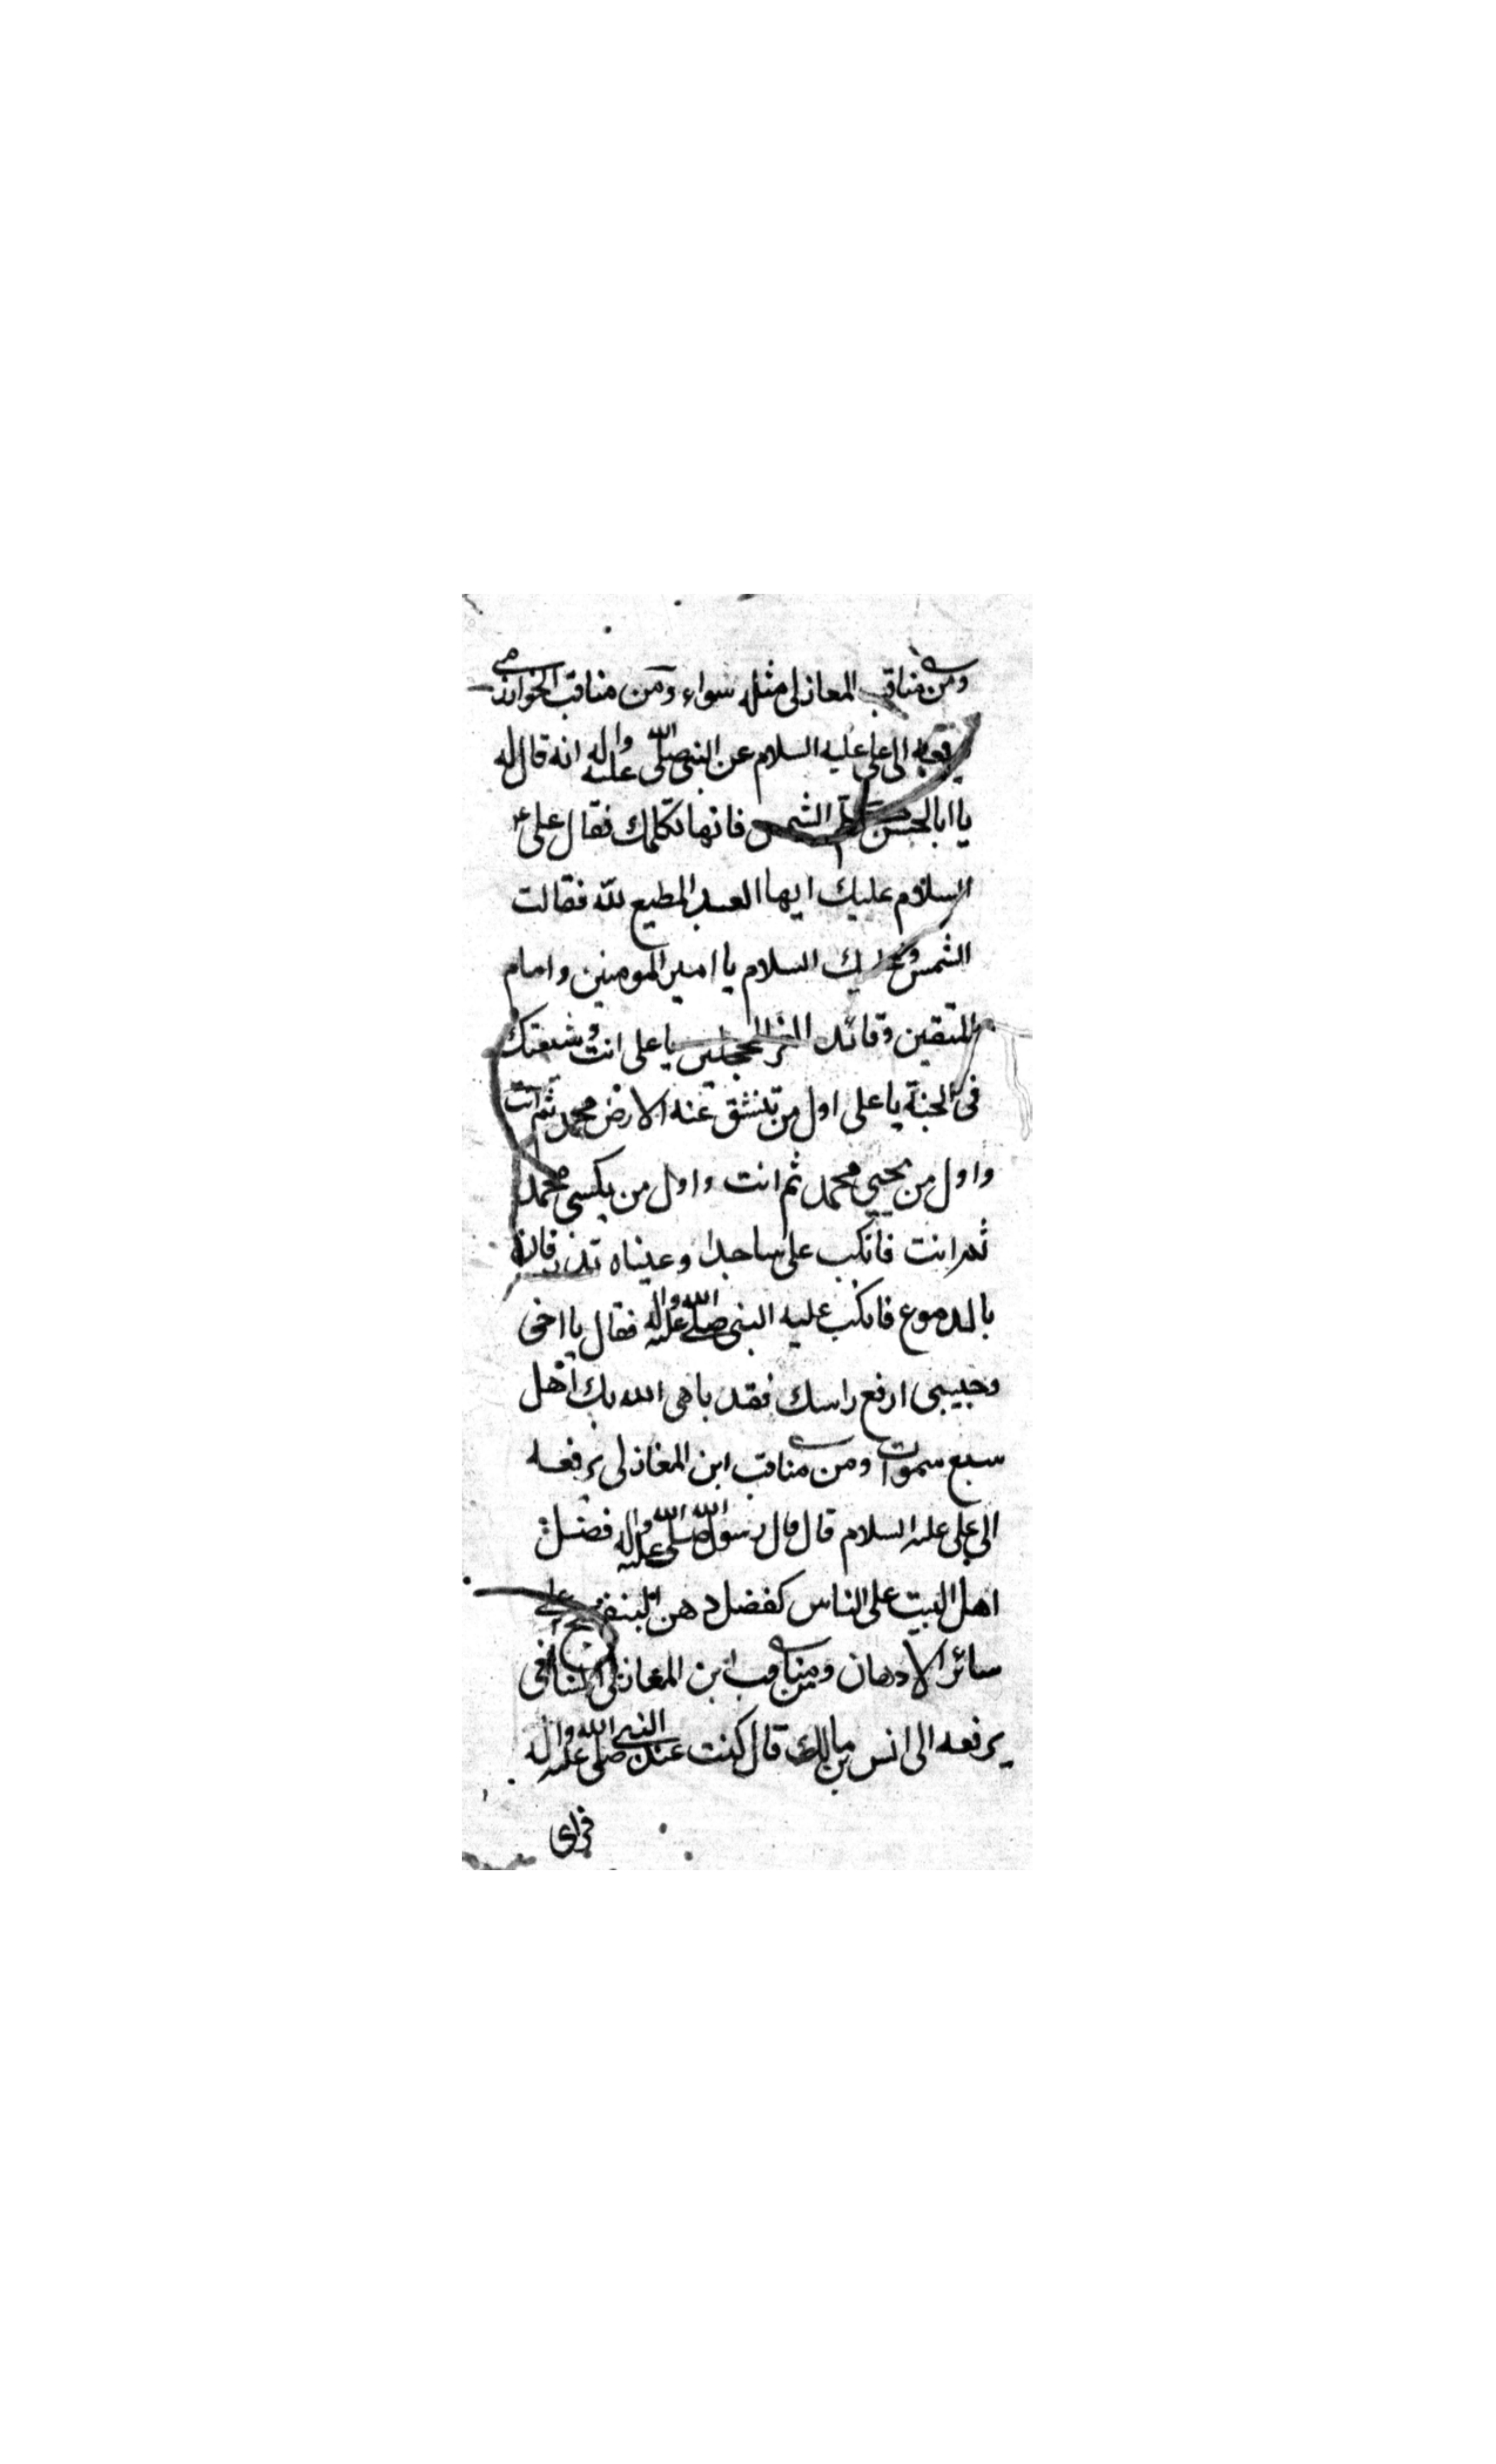 ومن مناقب المغازلى مثله سواء ومن مناقب الخوارزمى
يرفعه الى على عليه السلام عن النبى صلى الله عليه واله انه قال له
يا ابا الحسن كلم الشمس فانها تكلمك فقال على ع
السلام عليك ايها العبد المطيع لله فقالت
الشمس وعليك السلام يا امير المومنين وامام
المتقين وقائد الغر المحجلين يا على انت وشيعتك
فى الجنة يا على اول من تنشق عنه الارض محمد ثم انت
واول من يحيى محمد ثم انت واول من يكسى محمد
ثم انت فانكب على ساجدا وعيناه تذرفان
بالدموع فانكب عليه النبى صلى الله عليه واله فقال يا اخى
وحبيبى ارفع راسك فقد باهى الله بك اهل
سبع سموات ومن مناقب ابن المغازلى يرفعه
الى على عليه السلام قال قال رسول الله صلى الله عليه واله فضل
اهل البيت على الناس كفضل دهن البنفسج على
سائر الادهان ومن مناقب ابن المغازلى الشافى
يرفعه الى انس بن مالك قال كنت عند النبى صلى الله عليه واله
فراى